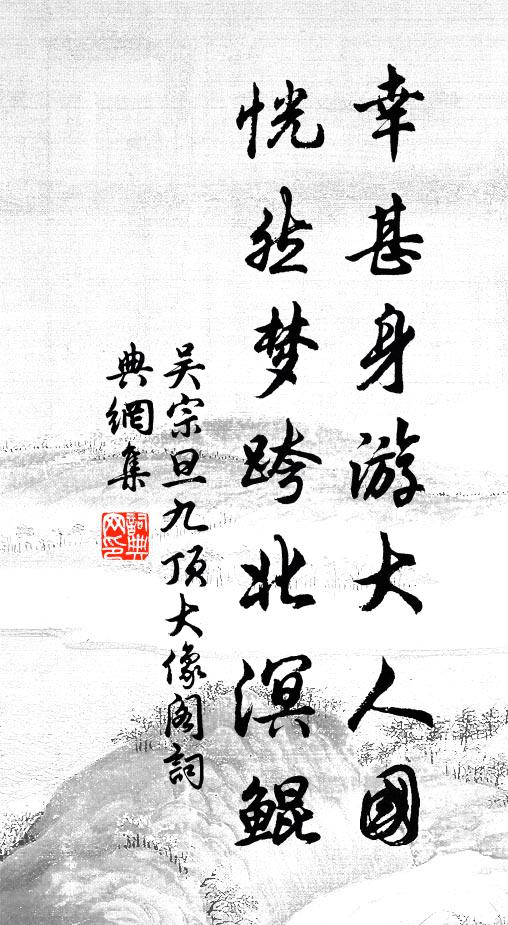 幸甚身游大人國
恍然梦跨北溟鯤
吴宗旦九顶大像阁詞
典網集
詞典网印